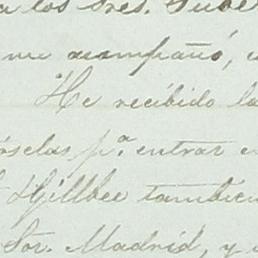 a los Sres. Gube
me acompañó, e
"He recibido la
árselas pª. entrar e
Hillbee también
Sor. Madrid, y